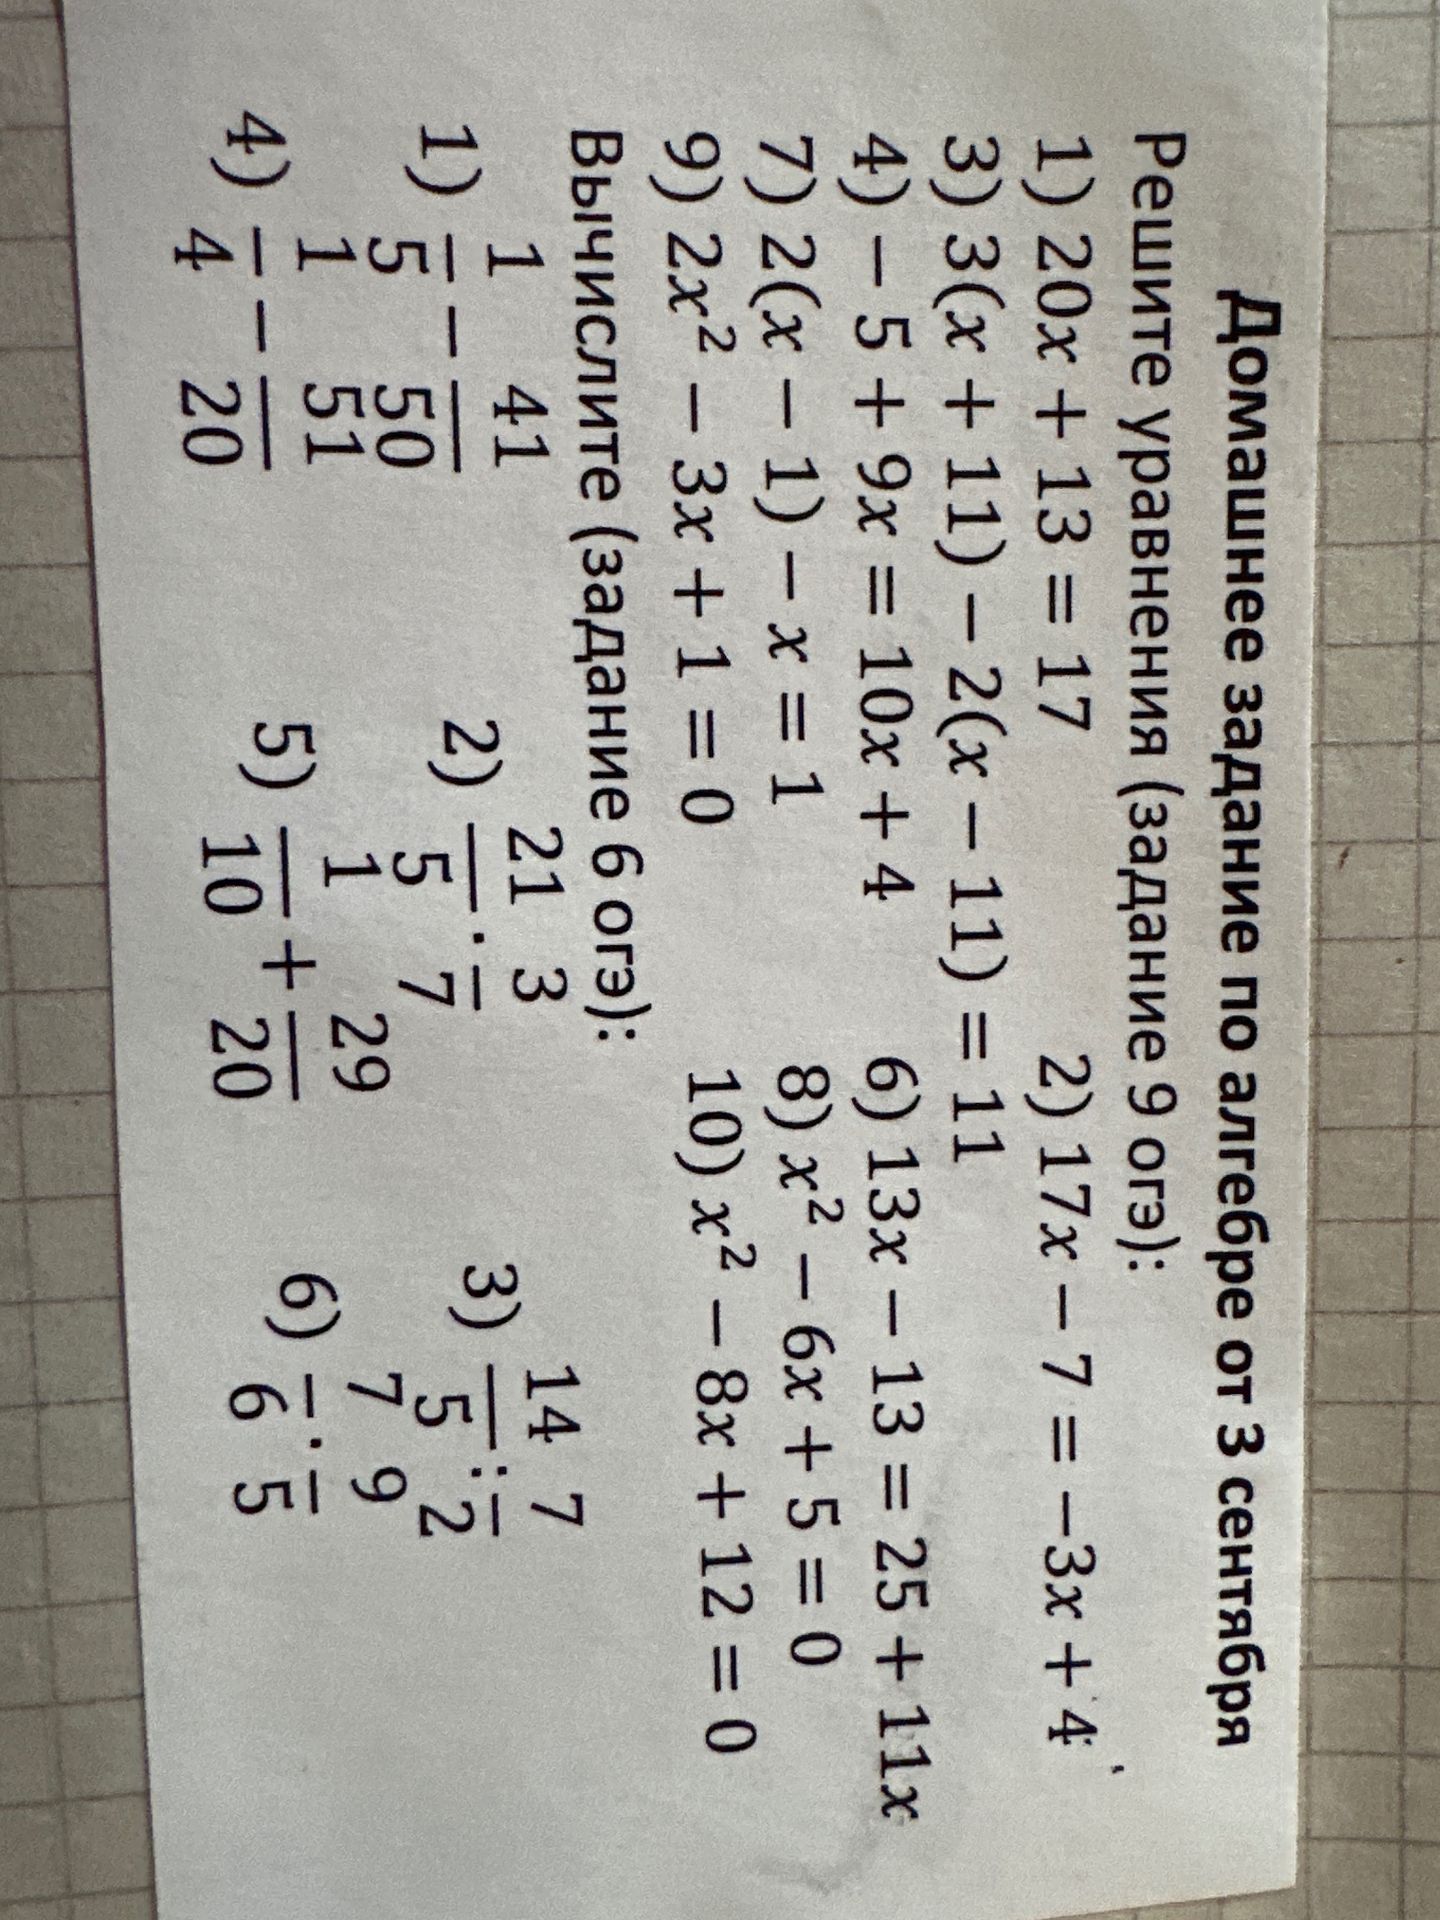 Домашнее задание по алгебре от 3 сентября
Решите уравнения (задание 9 огэ):
1) 20x + 13 = 17 2) 17x − 7 = −3x + 4
3) 3(x + 11) − 2(x − 11) = 11
4) − 5 + 9x = 10x + 4 6) 13x − 13 = 25 + 11x
7) 2(x − 1) − x = 1 8) x² − 6x + 5 = 0
9) 2x² − 3x + 1 = 0 10) x² − 8x + 12 = 0
Вычислите (задание 6 огэ):
1) 1/5 − 41/50 2) 21/5 · 3/7 3) 14/5 : 7/2
4) 1/4 − 51/20 5) 1/10 + 29/20 6) 7/6 · 9/5